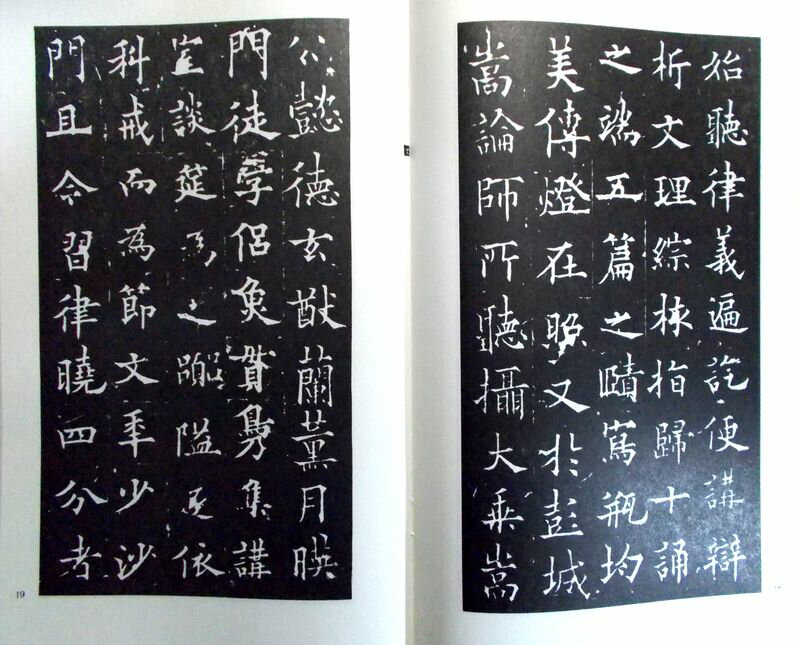 始聽律義遍訖便講辯
析文理綜指歸十誦
之端五篇之賾寫瓶均
美傳燈在照又於彭城
嵩論師所聽攝大乘嵩
公懿德玄猷蘭薰月暎
門徒學侶魚貫鳧集講
室談筵為之隘遂依
科戒而為節文年少沙
門且令習律曉四分者
19